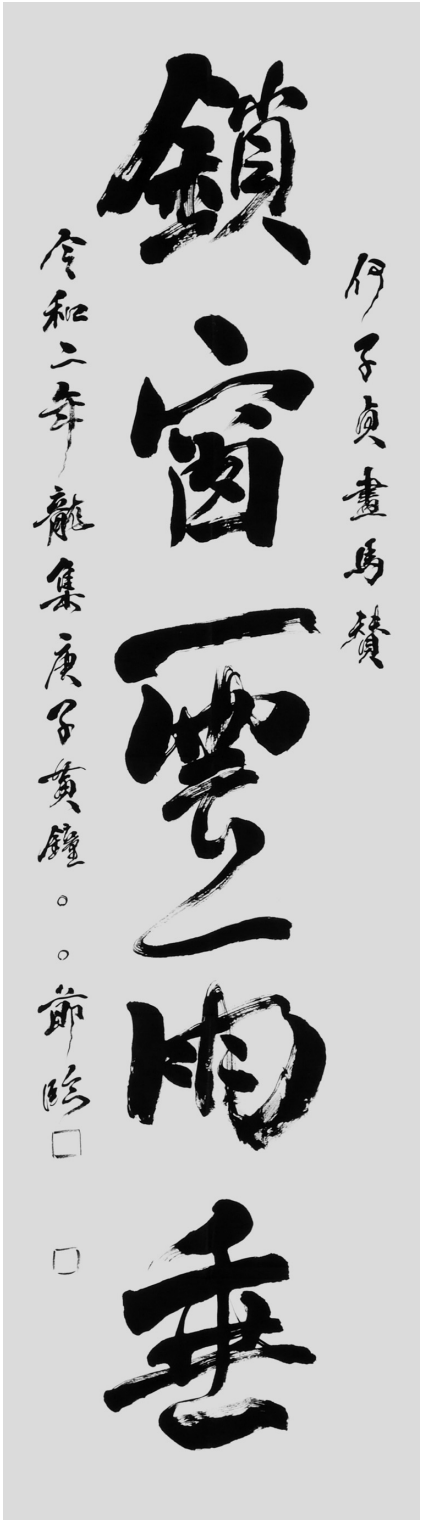 何子貞畫馬賛
鎖窗雲雨垂
令和二年龍集庚子黄鐘○○節臨